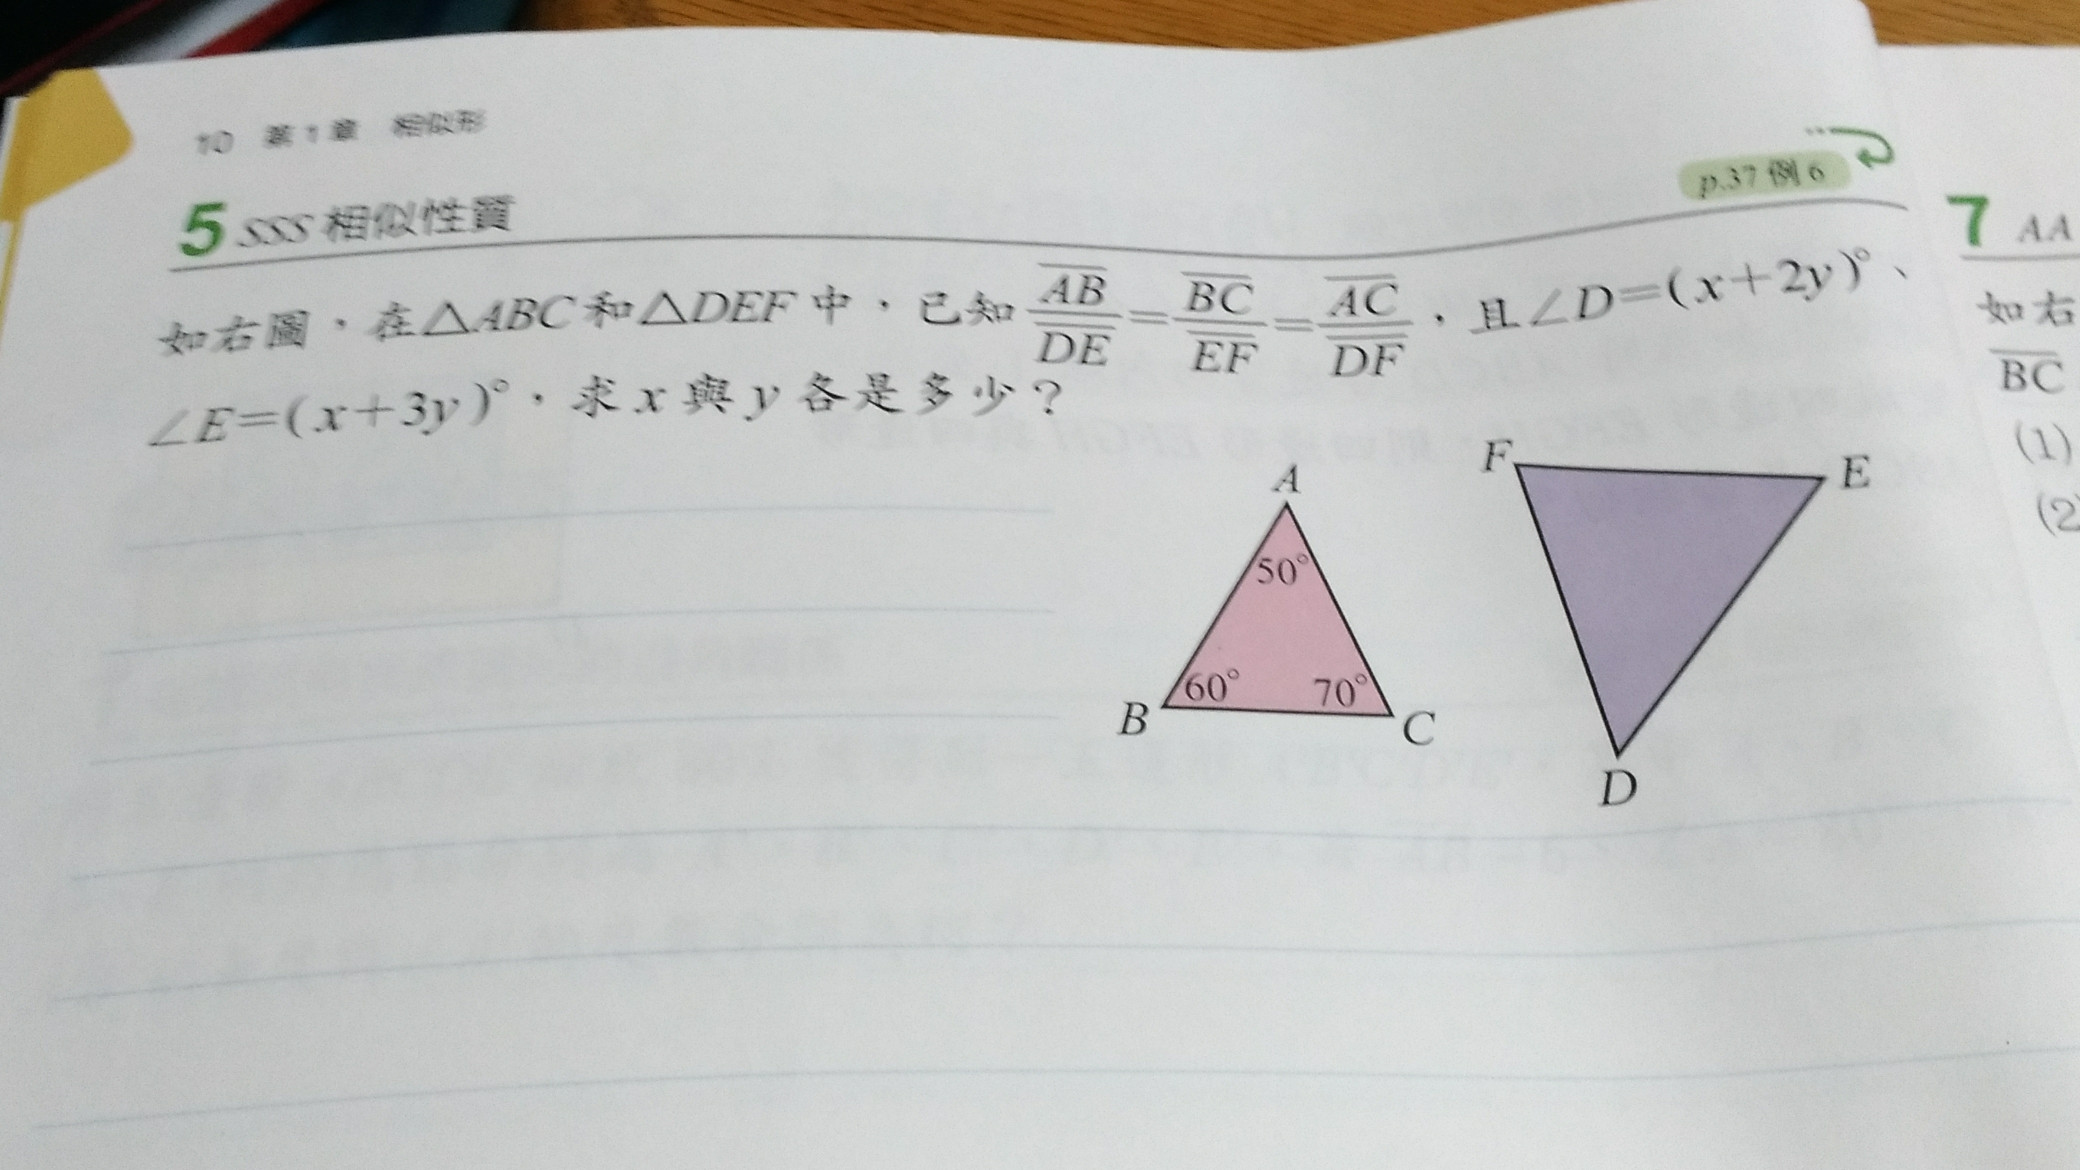 10 第1章 相似形
5 SSS 相似性質
p.37 例6
如右圖,在△ABC和△DEF中,已知 AB/DE=BC/EF=AC/DF,且∠D=(x+2y)°、
∠E=(x+3y)°,求x與y各是多少?
A
50°
B
60°
70°
C
F
E
D
7 AA
如右
BC
(1)
(2)